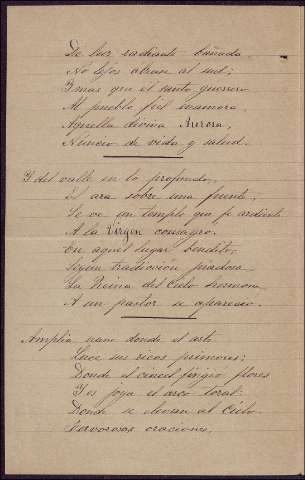 De luz radiante bañada
No lejos abrase al sud;
Y mas que el santo
Al pueblo fiel enamora
Aquella divina Aurora,
Núncio de vida y salud.
Y del valle en lo profundo,
Es ara sobre una fuente,
Se ve un templo que fe ardiente
A la Virgen consagró.
En aquel lugar bendito,
Segun tradición piadosa
La Reina del Cielo hermosa
A un pastor se apareció.
Amplia nave donde el arte
Luce sus ricos primores;
Donde el cincel fingió flores
Y es joya el arco toral;
Donde se elevan al Cielo
Fervorosas oraciones,